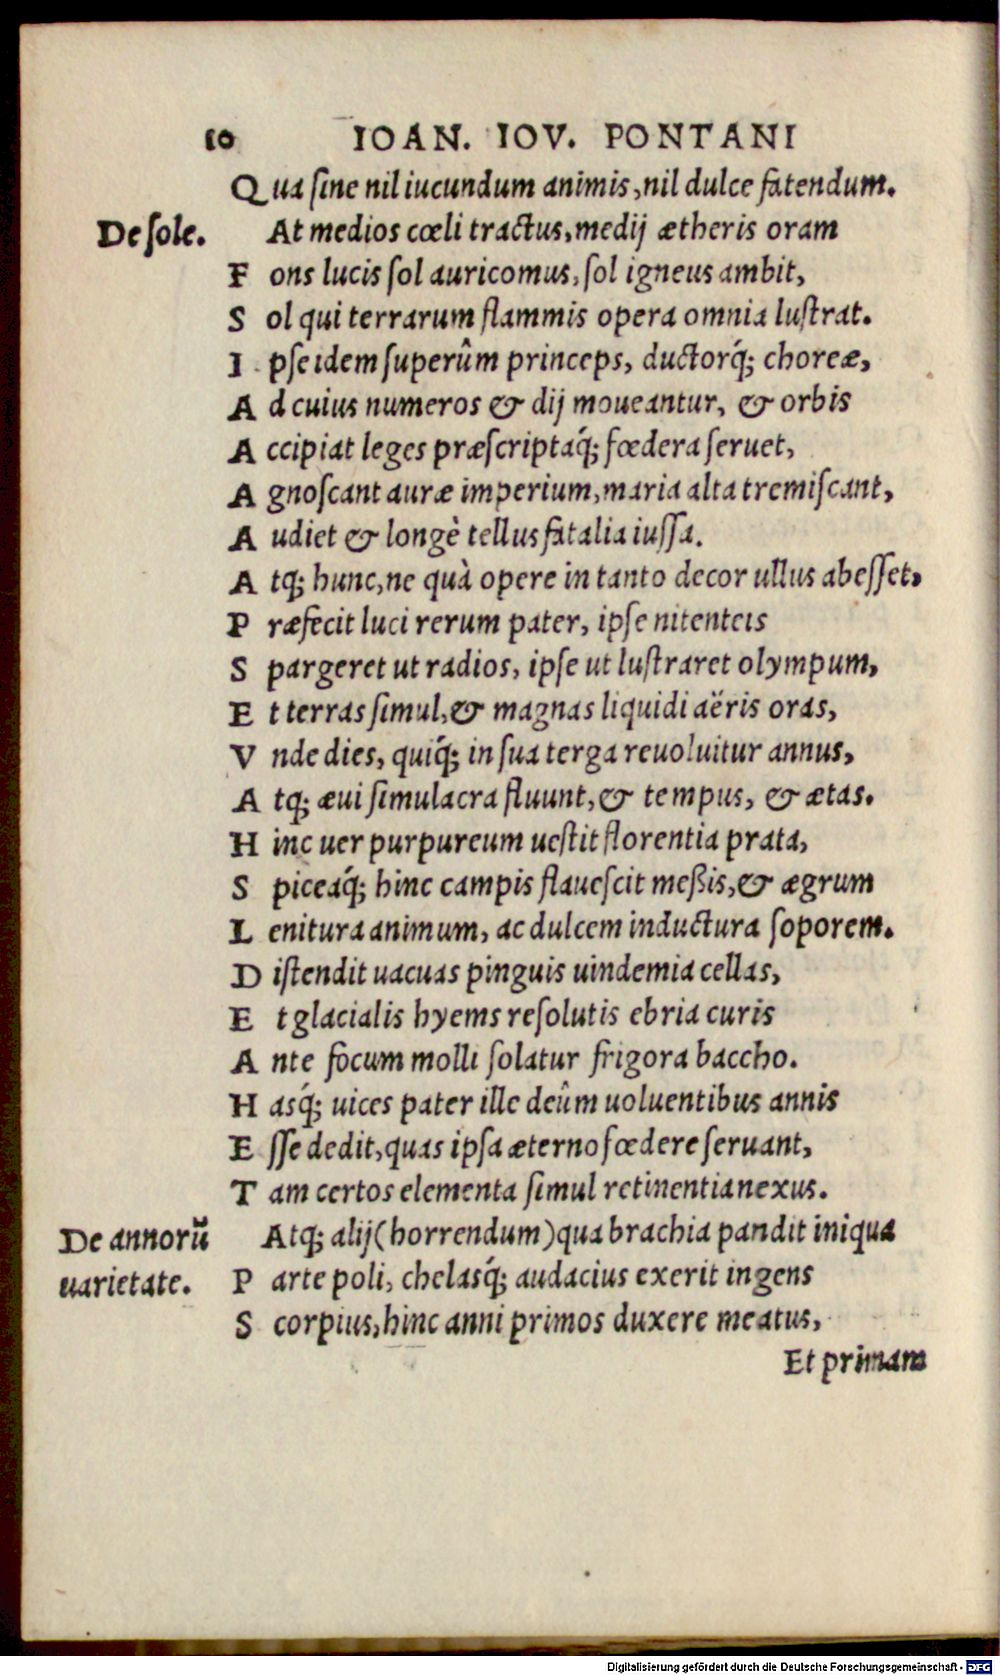 10 IOAN. IOV. PONTANI
Qua ſine nil iucundum animis, nil dulce fatendum.
De ſole.
At medios cœli tractus, medij ætheris oram
Fons lucis ſol auricomus, ſol igneus ambit,
Sol qui terrarum flammis opera omnia luſtrat.
Ipſe idem ſuperûm princeps, ductorq́; choreæ,
Ad cuius numeros & dij moueantur, & orbis
Accipiat leges præſcriptaq́; fœdera ſeruet,
Agnoſcant auræ imperium, maria alta tremiſcant,
Audiet & longè tellus fatalia iuſſa.
Atq; hunc, ne quà opere in tanto decor ullus abeſſet,
Præfecit luci rerum pater, ipſe nitenteis
Spargeret ut radios, ipſe ut luſtraret olympum,
Et terras ſimul, & magnas liquidi aëris oras,
Vnde dies, quiq́; in ſua terga reuoluitur annus,
Atq; æui ſimulacra fluunt, & tempus, & ætas.
Hinc uer purpureum ueſtit florentia prata,
Spiceaq́; hinc campis flaueſcit meßis, & ægrum
Lenitura animum, ac dulcem inductura ſoporem.
Diſtendit uacuas pinguis uindemia cellas,
Et glacialis hyems reſolutis ebria curis
Ante focum molli ſolatur frigora baccho.
Hasq́; uices pater ille deûm uoluentibus annis
Eſſe dedit, quas ipſa æterno fœdere ſeruant,
Tam certos elementa ſimul retinentia nexus.
De annorũ
uarietate.
Atq; alij (horrendum) qua brachia pandit iniqua
Parte poli, chelasq́; audacius exerit ingens
Scorpius, hinc anni primos duxere meatus,
Et primam
Digitalisierung gefördert durch die Deutsche Forschungsgemeinschaft - DFG